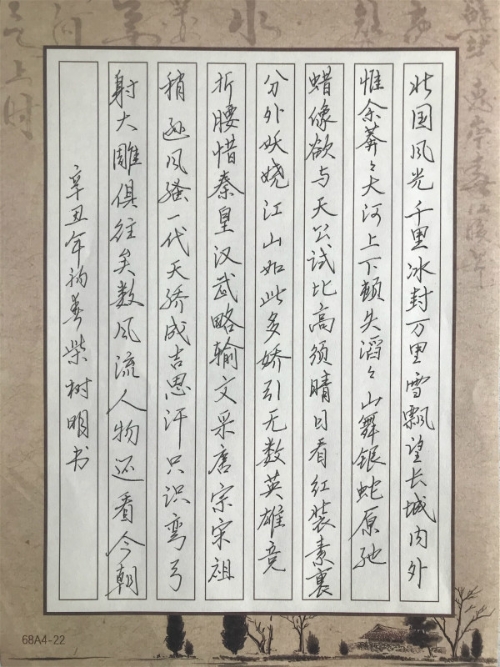 北国风光千里冰封万里雪飘望长城内外
惟余莽々大河上下顿失滔々山舞银蛇原驰
蜡像欲与天公试比高须晴日看红装素裹
分外妖娆江山如此多娇引无数英雄竞
折腰惜秦皇汉武略输文采唐宗宋祖
稍逊风骚一代天骄成吉思汗只识弯弓
射大雕俱往矣数风流人物还看今朝
辛丑年柴树明书
68A4-22